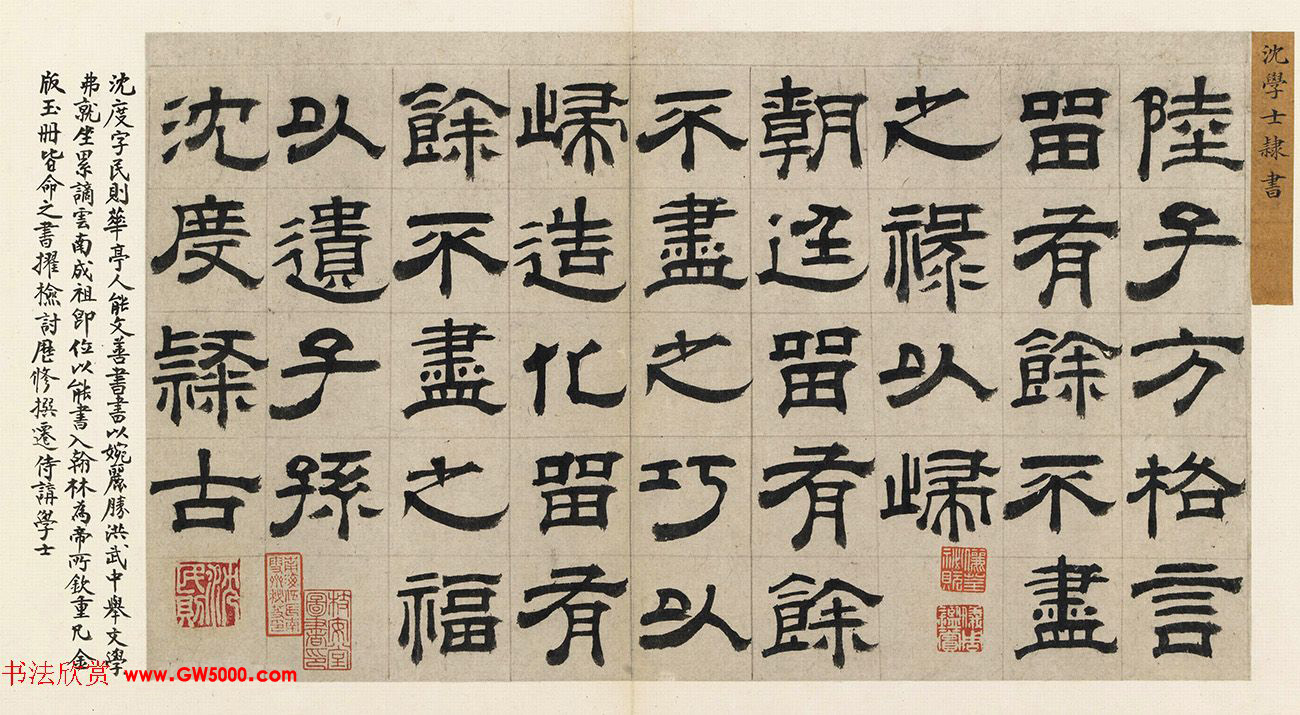 沈學士隸書
陸子方格言
留有餘不盡
之祿以歸
朝廷留有餘
不盡之巧以
歸造化留有
餘不盡之福
以遺子孫
沈度隸古
沈民則
沈度字民則華亭人能文善書書以婉麗勝洪武中舉文學
弗就坐累謫雲南成祖即位以能書入翰林為帝所欽重凡金
版玉冊皆命之書擢檢討歷修撰遷侍講學士
书法欣赏 www.GW5000.com